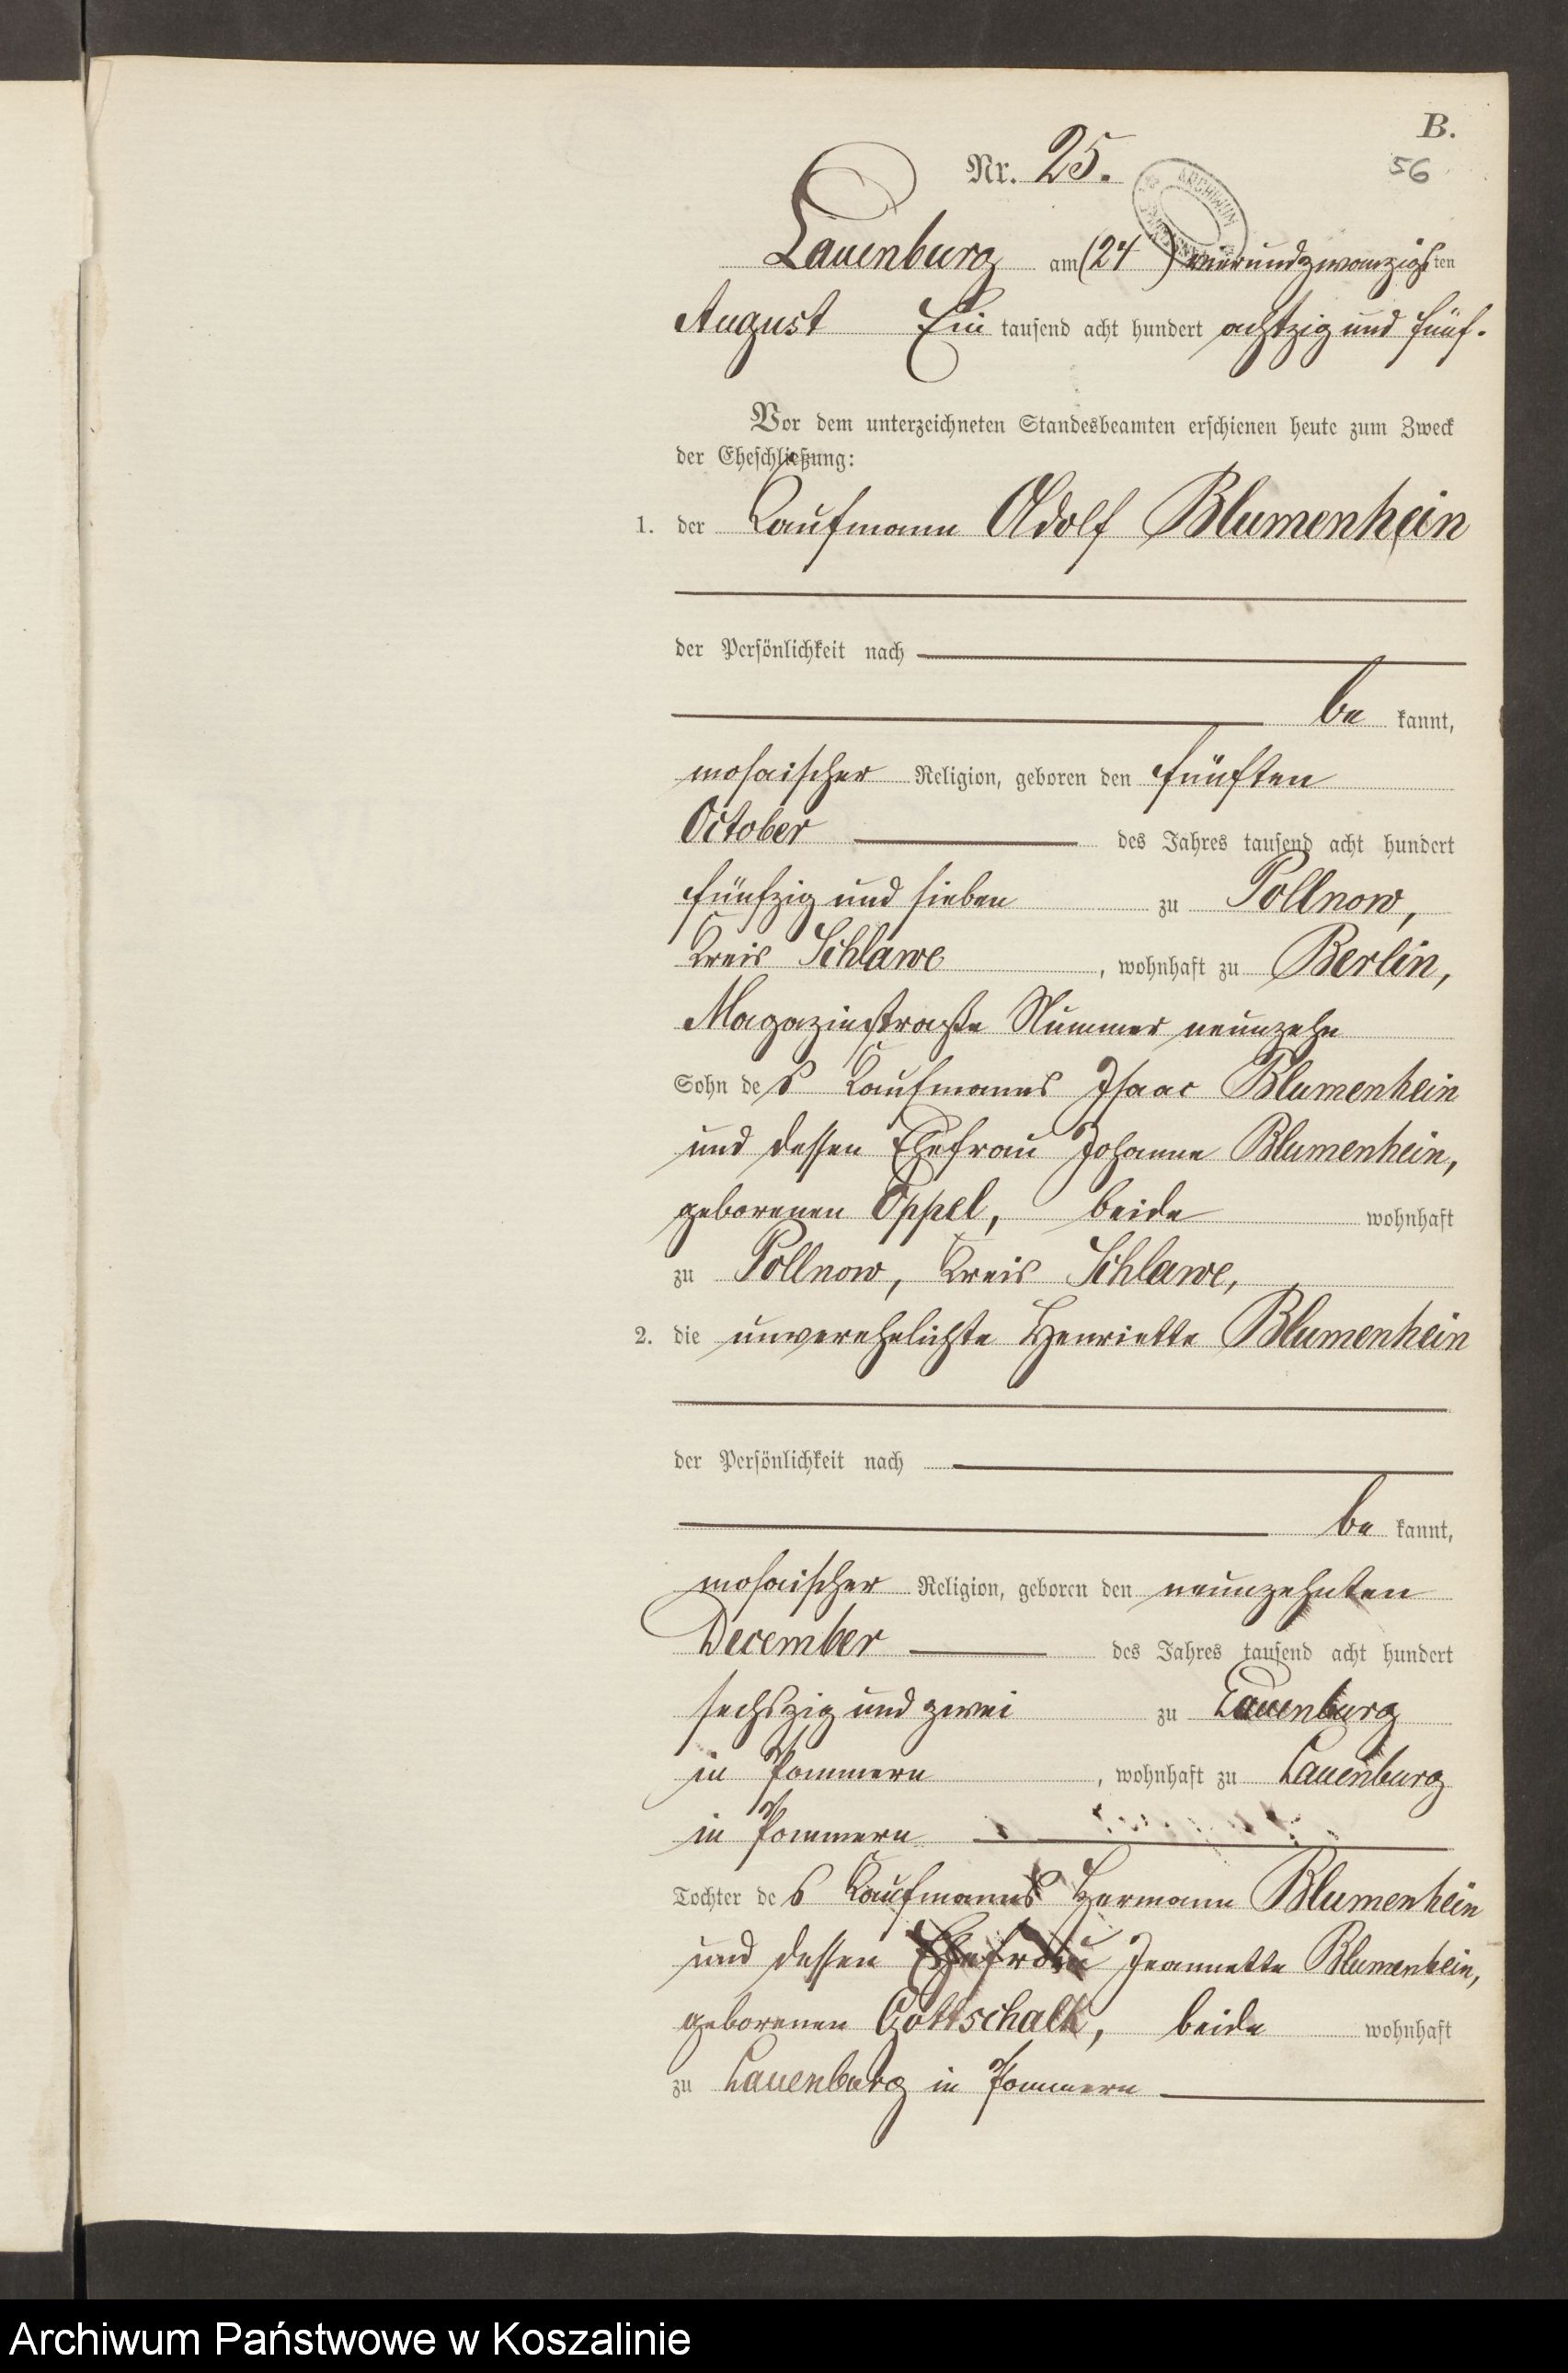 B.
Nr. 25.
56
ARCHIWUM
Lauenburg am (24) vierundzwanzigsten
August Ein tausend acht hundert achtzig und fünf.
Vor dem unterzeichneten Standesbeamten erschienen heute zum Zweck
der Eheschließung:
1. der Kaufmann Adolf Blumenhein
der Persönlichkeit nach
be kannt,
mosaischer Religion, geboren den fünften
October des Jahres tausend acht hundert
fünfzig und sieben zu Pollnow,
Kreis Schlawe, wohnhaft zu Berlin,
Magazinstraße Nummer neunzehn
Sohn des Kaufmanns Isaac Blumenhein
und dessen Ehefrau Johanne Blumenhein,
geborenen Oppel, beide wohnhaft
zu Pollnow, Kreis Schlawe,
2. die unverehelichte Henriette Blumenhein
der Persönlichkeit nach
be kannt,
mosaischer Religion, geboren den neunzehnten
December des Jahres tausend acht hundert
sechszig und zwei zu Lauenburg
in Pommern, wohnhaft zu Lauenburg
in Pommern
Tochter des Kaufmanns Hermann Blumenhein
und dessen Ehefrau Jeannette Blumenhein,
geborenen Gottschalk, beide wohnhaft
zu Lauenburg in Pommern
Archiwum Państwowe w Koszalinie